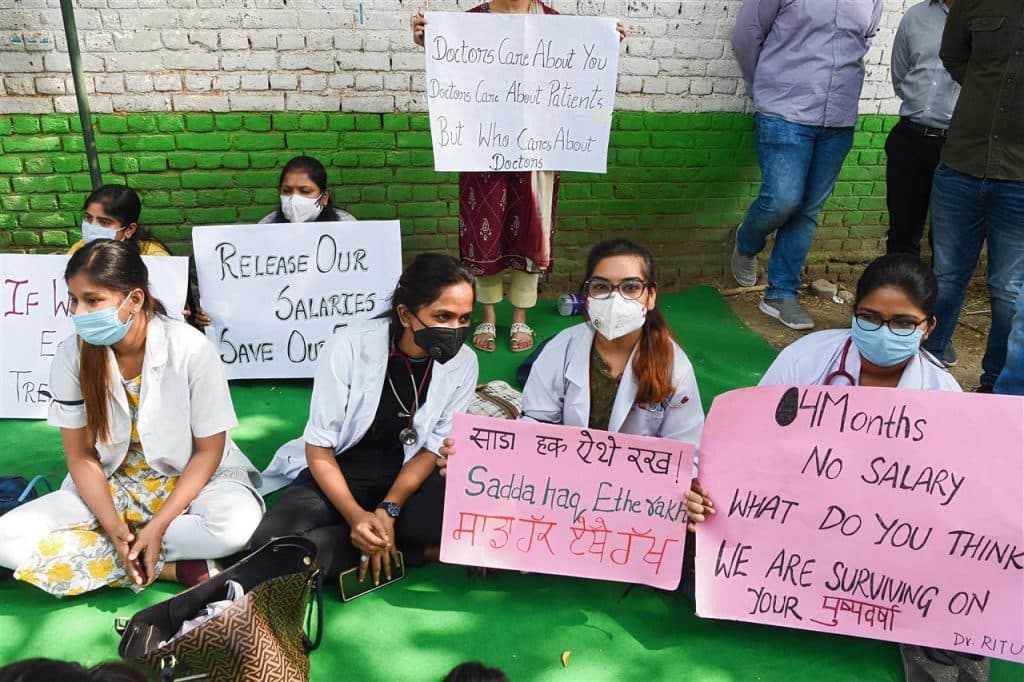 Doctors Care About YOU
Doctors Care About Patients
But Who Cares About
Doctors
Release Our
Salaries
Save Our
If
साडा हक ऐथे रख!
Sadda haq Ethe rakh
ਸਾਡਾ ਹੱਕ ਏਥੇ ਰੱਖ
04 Months
No SALARY
WHAT DO YOU THINK
WE ARE SURVIVING ON
YOUR पुष्पवर्षा
Dr. RITU